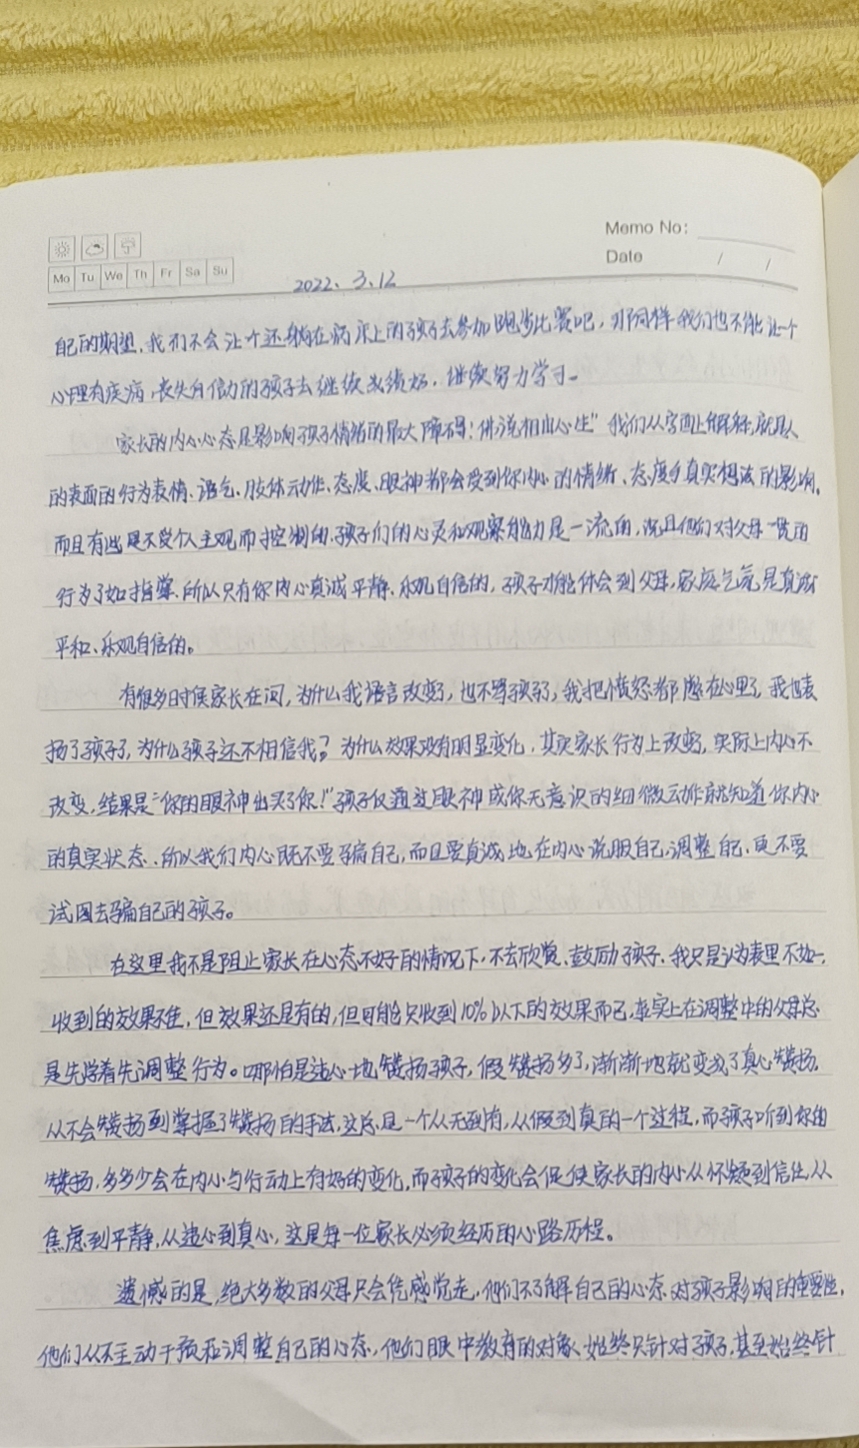 Memo No:
Date / /
Mo Tu We Th Fr Sa Su
2022、3、12
自己的期望、我们不会让个还躺在病床上的孩子去参加跑步比赛吧，那同样我们也不能让一个
心理有疾病，丧失自信力的孩子去继续成绩好，继续努力学习。
家长的内心心态是影响孩子情绪的最大障碍！佛说相由心生"我们从字面上解释，就是人
的表面的行为表情、语气、肢体动作、态度、眼神都会受到你内心的情绪、态度与真实想法的影响，
而且有些是不受个人主观而控制的、孩子们的心灵和观察能力是一流的，况且他们对父母一贯的
行为了如指掌、所以只有你内心真诚平静、乐观自信的，孩子才能体会到父母，家庭气氛是真诚
平和、乐观自信的。
有很多时侯家长在问，为什么我语言改变了，也不骂孩子了，我把愤怒都憋在心里了，我也表
扬了孩子了，为什么孩子还不相信我？为什么效果没有明显变化，其实家长行为上改变，实际上内心不
改变，结果是："你的眼神出卖了你！"孩子仅通过眼神或你无意识的细微动作就知道你内心
的真实状态、所以我们内心既不要骗自己，而且要真诚地在内心说服自己，调整自己、更不要
试图去骗自己的孩子。
在这里我不是阻止家长在心态不好的情况下，不去欣赏、鼓励孩子、我只是认为表里不如一，
收到的效果不佳，但效果还是有的，但可能只收到10%以下的效果而已，事实上在调整中的父母总
是先学着先调整行为。哪怕是违心地赞扬孩子，假赞扬多了，渐渐地就变成了真心赞扬，
从不会赞扬到掌握了赞扬的手法，这总是一个从无到有，从假到真的一个过程，而孩子听到你的
赞扬，多多少会在内心与行动上有好的变化，而孩子的变化会促使家长的内心从怀疑到信任，从
焦虑到平静，从违心到真心，这是每一位家长必须经历的心路历程。
遗憾的是，绝大多数的父母只会凭感觉走，他们不了解自己的心态对孩子影响的重要性，
他们从不主动干预和调整自己的心态，他们眼中教育的对象、始终只针对孩子，甚至始终针